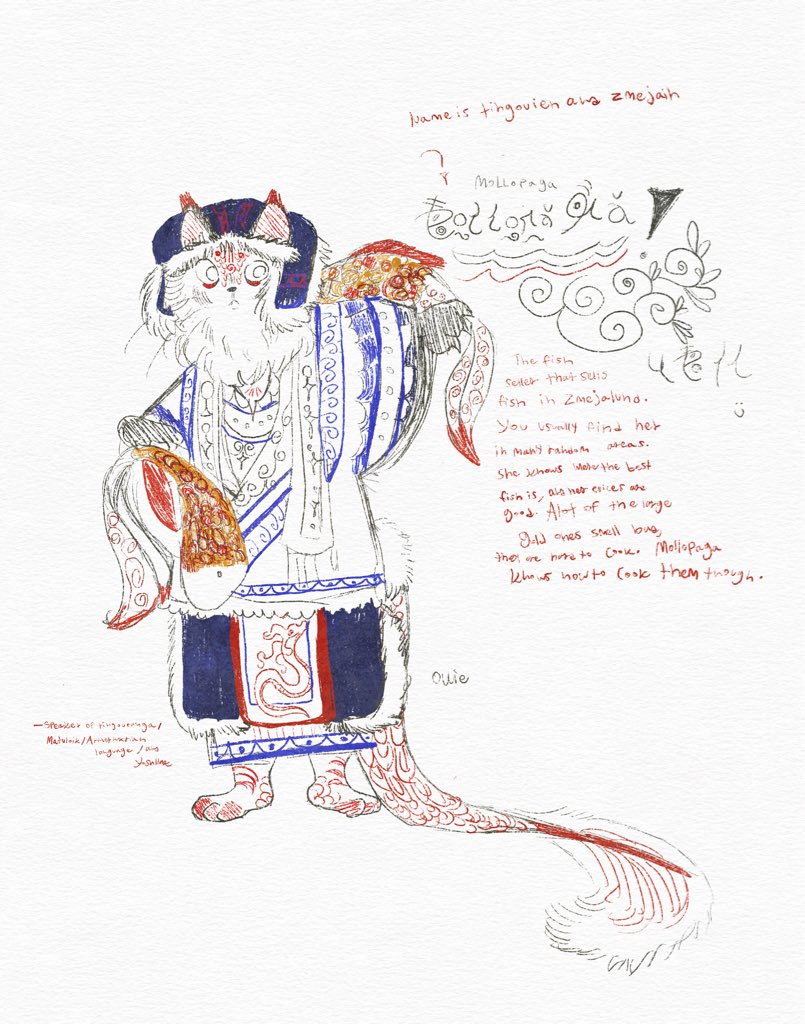 Name is tingovien and zmejain
?
Mollopaga
The fish
seller that sells
fish in Zmejalund.
You usually find her
in many random areas.
She knows were the best
fish is, and her prices are
good. Alot of the large
gold ones smell bad,
they are hard to cook. Mollopaga
knows how to cook them though.
Ollie
— Speaker of
language / and